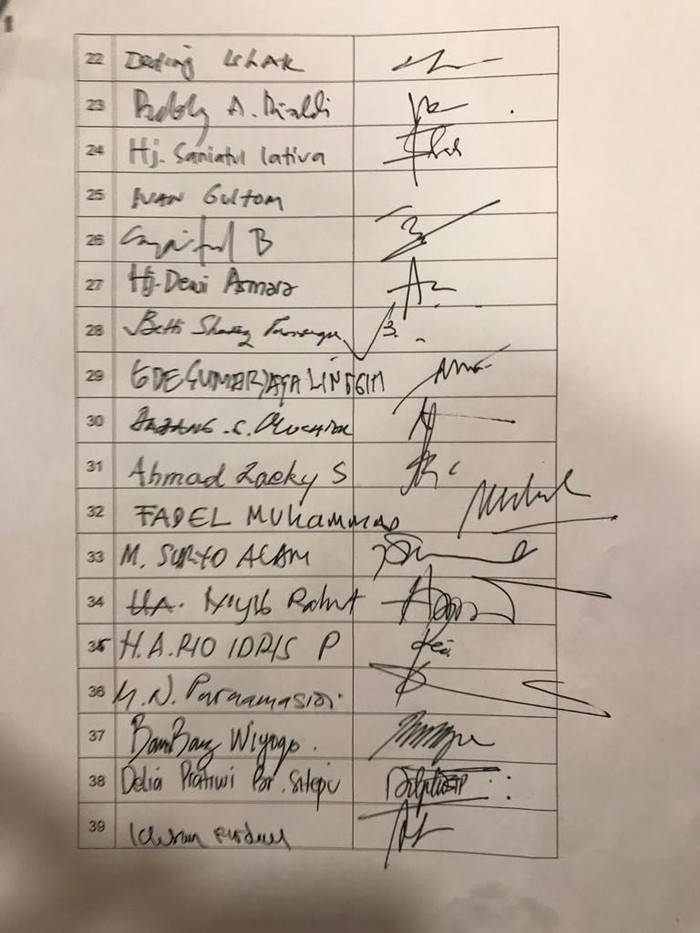 22 Deding Ishak
23 Bobby A. Rinaldi
24 Hj. Saniatul Lativa
25 IVAN Gultom
26 B
27 Hj. Dewi Asmara
28 Betti Shadiq
29 GDE SUMARJAYA LINGGIH
30
31 Ahmad Zacky S
32 FADEL MUhammad
33 M. SURYO ALAM
34 HA.
35 H.A.RIO IDRIS P
36 M.N. Purnamasidi
37 BamBang Wiyogo.
38 Delia Pratiwi Br. Sitepu
39 Ichsan Firdaus